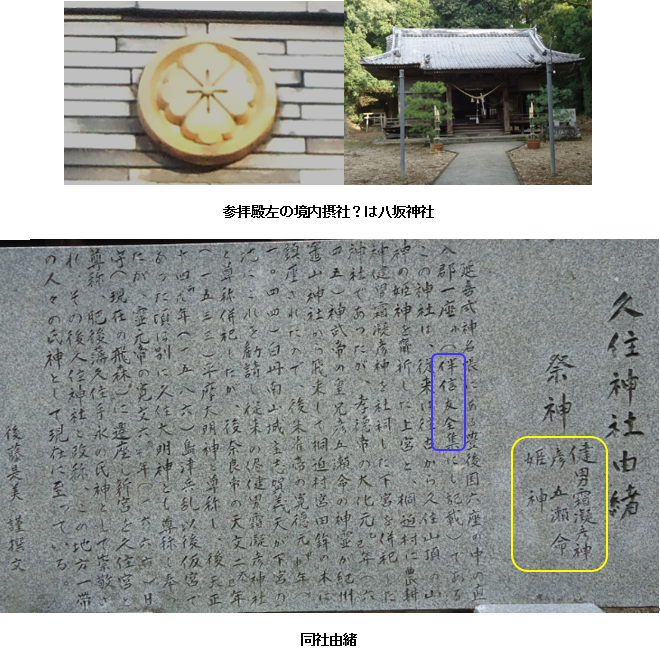 参拝殿左の境内摂社?は八坂神社
久住神社由緒
祭神
健男霜凝彦神
彦五瀬命
姫神
延喜式神名帳にある豊後国六座の中の直
入郡一座が(伴信友全集にも記載)である
この神社は、従来は往古から久住山頂の山
神の姫神を斎祈した上宮と、桐迫村に農耕
神健男霜凝彦神を社祠に下宮を併祀した
神社であったが、孝徳帝の大化元年(六
四五)神武帝の皇兄彦五瀬命の神霊が紀州
竈山神社から飛来して桐迫村宮田鉾の木に
鎮座されたので、後朱雀帝の寛徳元年(
一〇四四)白丹南山城主志賀義天が下宮の
地にこれを勧請し従来の健男霜凝彦神社
と尊称併祀したが 後奈良帝の天文二年
(一五三三)平摩大明神と尊称し、後天正
十四年(一五八六)島津兵乱以後仮宮で
あった頃は別に久住大明神とし尊称し奉っ
たが、霊元帝の寛文六年(一六六六)日
守(現在の森)に遷座し新宮を久住宮と
尊称、肥後藩久住手永の氏神として崇敬さ
れ、その後久住神社と改称、この地方一帯
の人々の氏神として現在に至っている
後藤是美 謹撰文
同社由緒